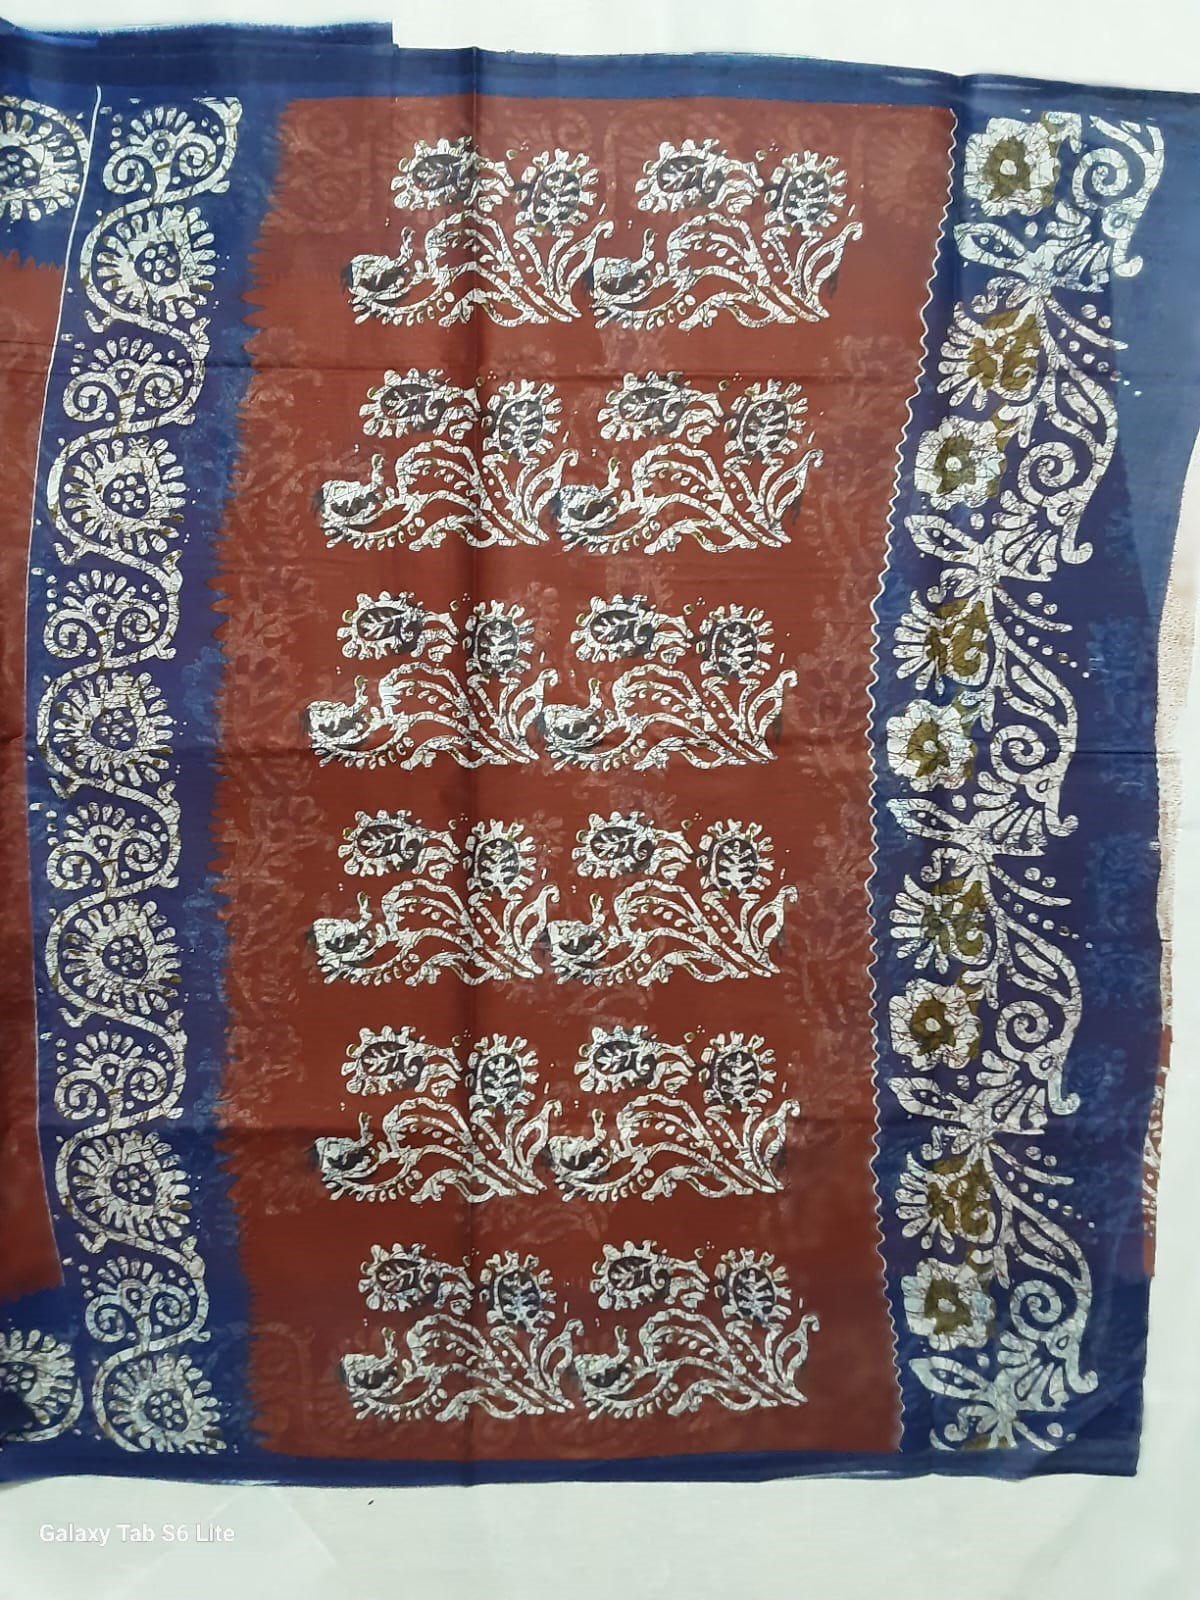 Galaxy Tab S6 Lite